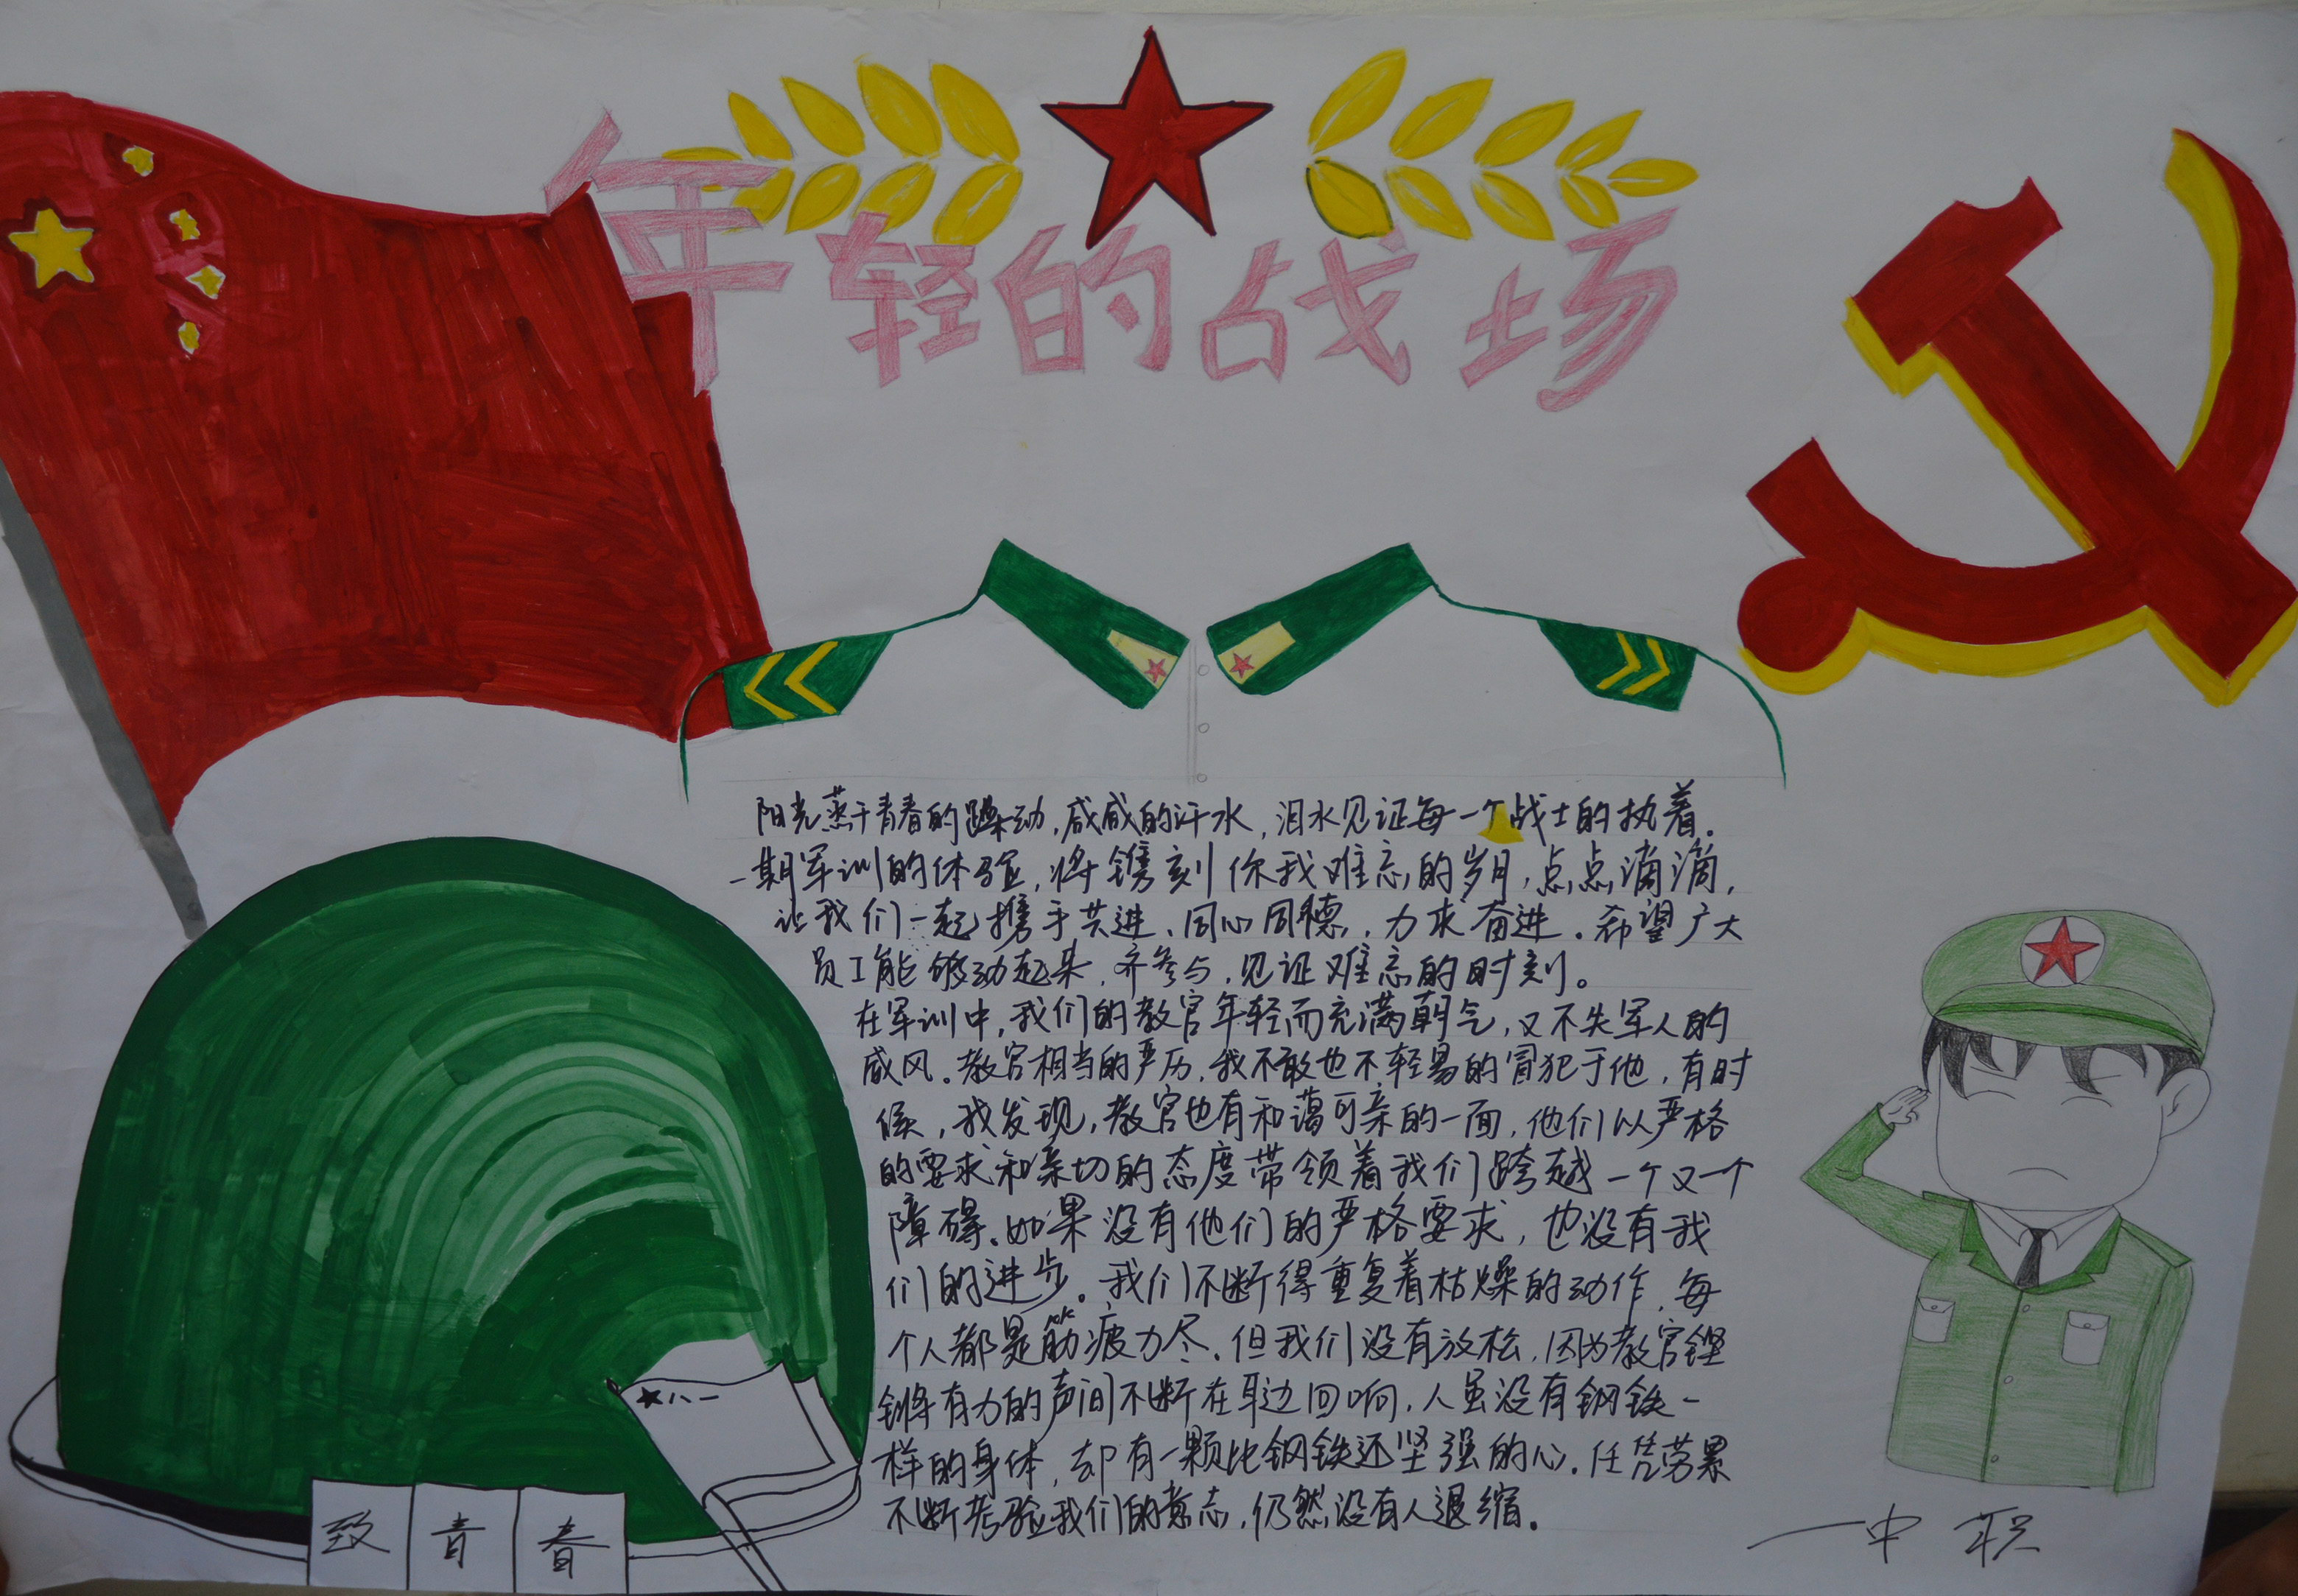 年轻的战场
阳光蒸干青春的躁动,咸咸的汗水,泪水见证每一个战士的执着。
一期军训的体验,将镌刻你我难忘的岁月,点点滴滴,
让我们一起携手共进、同心同德,力求奋进。希望广大
员工能够动起来,齐参与,见证难忘的时刻。
在军训中,我们的教官年轻而充满朝气,又不失军人的
威风。教官相当的严厉,我不敢也不轻易的冒犯于他,有时
候,我发现,教官也有和蔼可亲的一面,他们以严格
的要求和亲切的态度带领着我们跨越一个又一个
障碍。如果没有他们的严格要求,也没有我
们的进步。我们不断得重复着枯燥的动作,每
个人都是筋疲力尽。但我们没有放松,因为教官铿
锵有力的声间不断在耳边回响,人虽没有钢铁一
样的身体,却有一颗比钢铁还坚强的心。任凭劳累
不断考验我们的意志,仍然没有人退缩。
★八一
致青春
一中 职